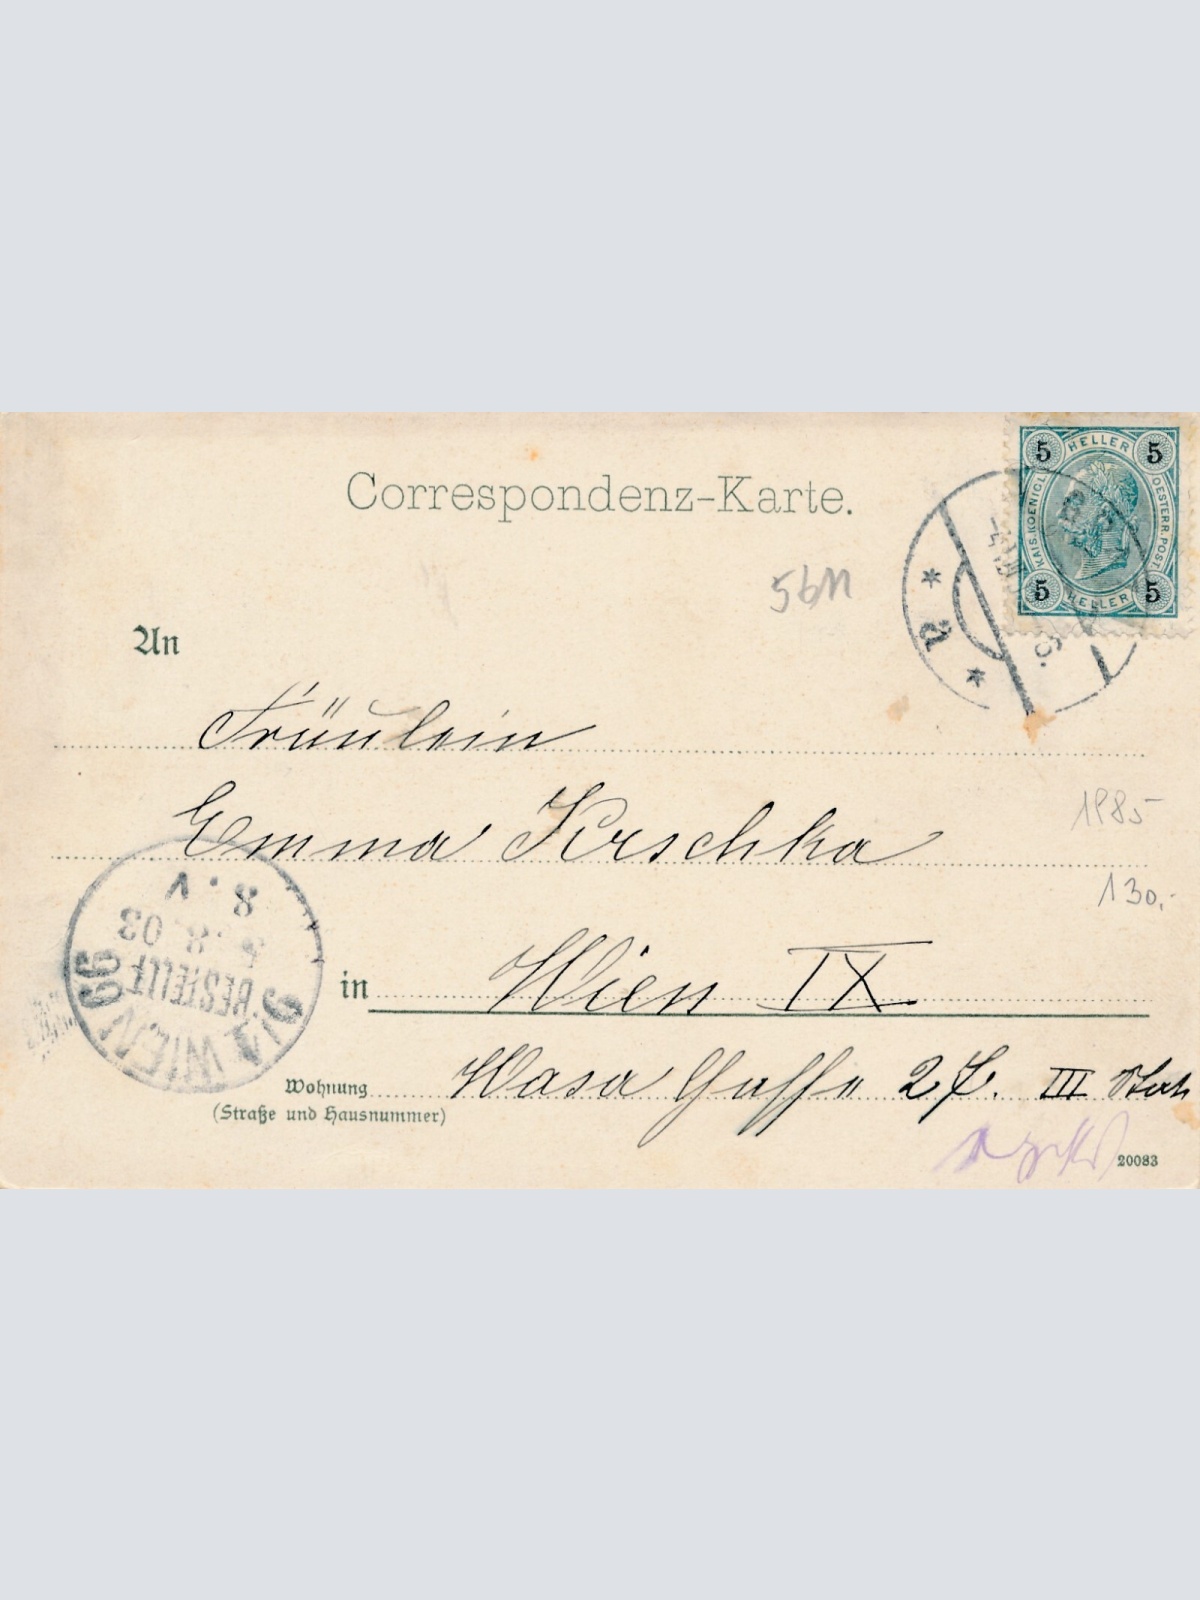 Correspondenz-Karte.
5 HELLER 5
KAIS. KOENIGL.
OESTERR. POST
5 HELLER 5
An
Fräulein
Emma Kirschka
1985
130,-
in Wien IX
8. V
8. 03
BESTELLT
9/4 WIEN 66
Wohnung Wasa Gasse 27. III Stock
(Straße und Hausnummer)
20083